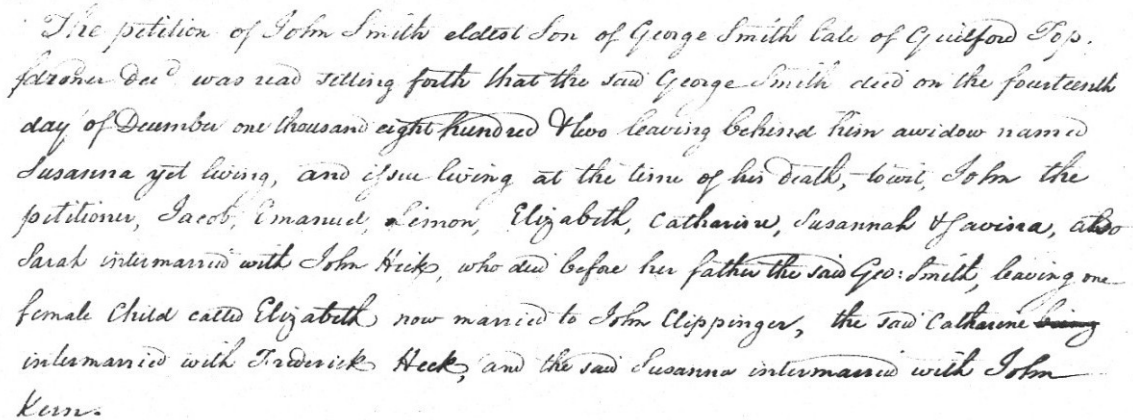 The petition of John Smith eldest Son of George Smith late of Guilford Top.
Decd. was read setting forth that the said George Smith died on the fourteenth
day of December one thousand eight hundred & two leaving behind him a widow named
Susanna yet living, and issue living at the time of his death, towit, John the
petitioner, Jacob, Emanuel, Simon, Elizabeth, Catharine, Susannah & Savina, also
Sarah intermarried with John Heck, who died before her father the said Geo: Smith, leaving one
female Child called Elizabeth now married to John Clippinger, the said Catharine being
intermarried with Frederick Heck, and the said Susanna intermarried with John
Kern.